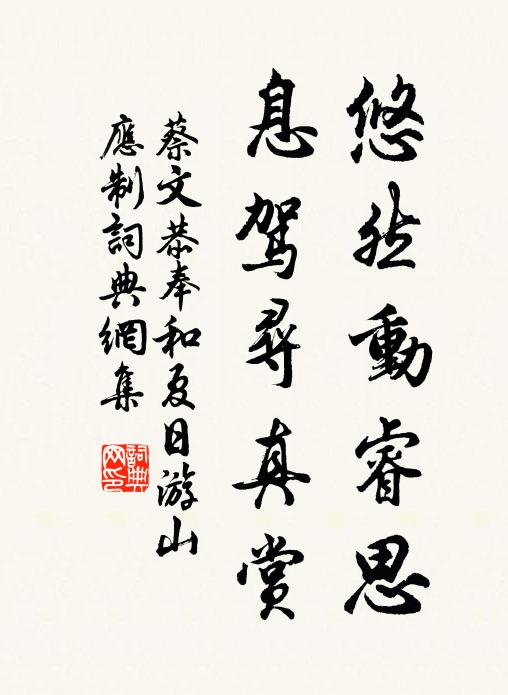 悠然動睿思
息駕尋真賞
蔡文恭奉和夏日游山
應制詞典網集
詞典
网印